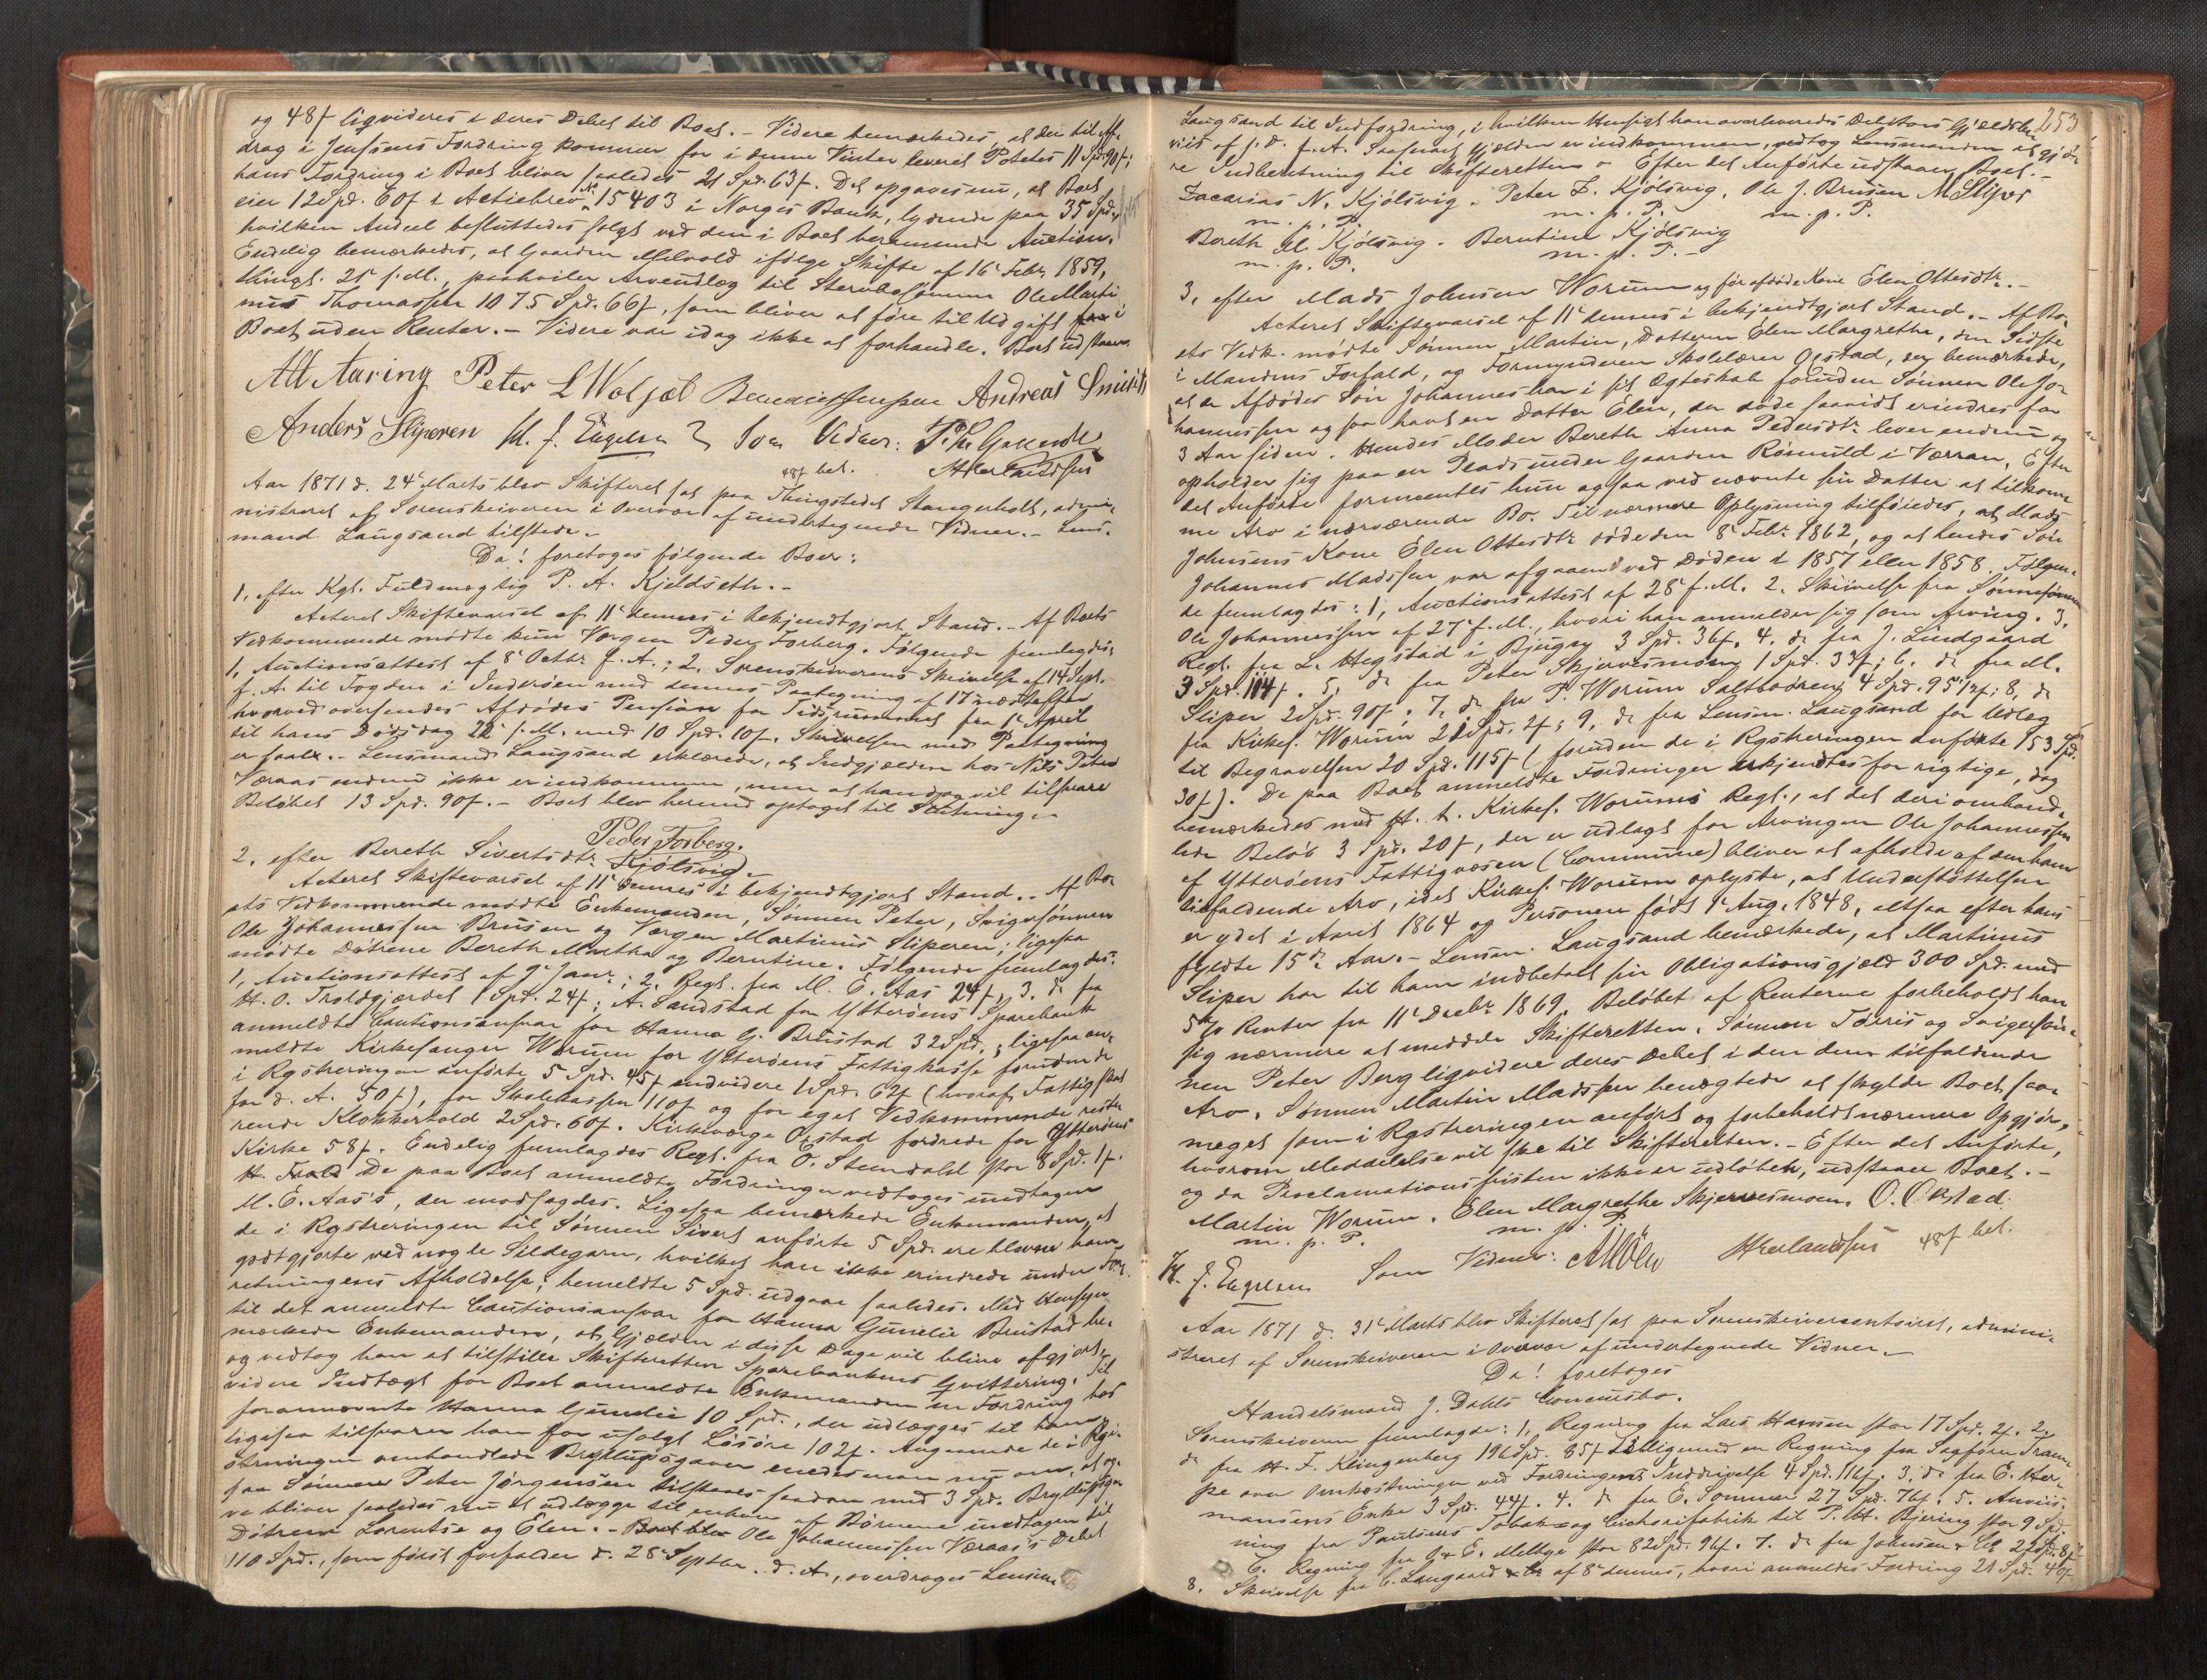 og 48f ligvideres i deres Debet til Boet. - Videre bemærkedes, at der til Af-
drag i Jenssens Fordring kommer for i denne Vinter leveret Potetes 11 Spd. 90f;
hans Fordring i Boet bliver saaledes 21 Spd. 63f. Det opgaves nu, at Boet
eier 12 Spd. 60f i Actiebrev No 15403 i Norges Bank, lydende paa 35 Spd.,
hvilken Andeel besluttedes solgt ved den i Boet berammede Auction.
Endelig bemærkedes, at Gaarden Melvold ifølge Skifte af 16 Febr. 1859,
thingl. 25 s.M., paahviler Arveudlæg til Stervbosønnen Ole Marti
nus Thomassen 1075 Spd. 66f, som bliver at føre til Udgift i
Boet uden Renter. - Videre var idag ikke at forhandle. Boet udstaaer.
Peter L Woljæl Andreas
Anders Sliperen H. J. Engelsen Som Vidner:
48f bet.
Aar 1871 d. 24 Marts blev Skifteret sat paa Thingstedet Stangerholt, admi-
nistreret af Sorenskriveren i Overvær af undertegnede Vidner. - Lens-
mand Laugsand tilstede. -
Da! foretoges følgende Boer:
1, efter Kgl. Fuldmægtig P. A. Kjeldseth. -
Acteret Skiftevarsel af 11 dennes i bekjendtgjort Stand. - Af Boets
Vedkommende mødte kun Værgen Peder Forberg. Følgende fremlagdes:
1, Auctionsattest af 8 Octbr f. A.; 2. Sorenskriverens Skrivelse af 14 Sept.
f. A. til Fogden i Inderøen med dennes Paategning af 17 næstefter
hvorved oversendes Afdødes Pension for Tidsrummet fra 1 April
til hans Dødsdag 22 s.M. med 10 Spd. 10f. Skrivelsen med Paategning
er saal. - Lensmand Laugsand erklærede, at Indgjælden hos Nils Peter
Væraas endnu ikke er indkommen, men at han dog vil tilsvare
Beløbet 13 Spd. 90f. - Boet blev hermed optaget til Slutning. -
Peder Forberg.
2, efter Bereth Sivertsdtr. Kjølsvig. -
Acteret Skiftevarsel af 11 dennes i bekjendtgjort Stand. - Af Bo-
ets Vedkommende mødte Enkemanden, Sønnen Peter, Svigersønnen
Ole Johannessen Brusen og Værgen Martinus Sliperen; ligesaa
mødte Døtrene Bereth Martha og Berntine. Følgende fremlagdes:
1, Auctionsattest af 9 Janr.; 2, Regl. fra M. E. Aas 24f, 3. do fra
H. O. Troldgjærdet 1 Spd. 24f; A. Sandstad for Ytterøens Sparebank
anmeldte Cautionsansvar for Hanna G. Brustad 32 Spd.; ligesaa an-
meldte Kirkesanger Worum for Ytterøens Fattigkasse foruden de
i Rgstreringen anførte 5 Spd. 45f endvidere 1 Spd. 62f (hvoraf Fattigskat
for d. A. 50f), for Skolekassen 110f og for eget Vedkommende reste-
rende Klokkertold 2 Spd. 60f. Kirkeværge Okstad fordrede for Ytterøens
Kirke 58f. Endelig fremlagdes Regl. fra O. Stendahl stor 8 Spd. 1f.
De paa Boet anmeldte Fordringer vedtoges undtagen
M. E. Aas's, der modsagdes. Ligesaa bemærkede Enkemanden, at
de i Rgstreringen til Sønnen Sivert anførte 5 Spd. ere blevne ham
godtgjorte ved nogle Sildegarn, hvilket han ikke erindrede under For-
retningens Afholdelse; bemeldte 5 Spd. udgaae saaledes. Med Hensyn
til det anmeldte Cautionsansvar for Hanna Gunelie Brustad be-
mærkede Enkemanden, at Gjælden i disse Dage vil blive afgjort,
og vedtog han at tilstille Skifteretten Sparebankens Qvittering. Til
videre Indtægt for Boet anmeldte Enkemanden en Fordring hos
forannævnte Hanna Gunelie 10 Spd., der udlægges til ham,
ligesaa tilsvarer han for usolgt Løsøre 102f. Angaaende de i Rgi-
streringen omhandlede Bryllupsgaver enedes man nu om, at og-
saa Sønnen Peter Jørgensen tilstaaes saadan med 3 Spd. Bryllupsga-
ve bliver saaledes nu at udlægge til enhver af Børnene undtagen til
Døtrene Lorentse og Elen. - Ole Johannessen Væraas's Debet
110 Spd., som først forfalder d. 28 Septbr. d. A., overdroges Lensmd.
253
Laugsand til Indfordring, i hvilken Henseigt han overleveredes Debitors Gjældsbe-
viis af s. D. f. A. Saasnart Gjælden er indkommen, vedtog Lensmanden at gjø-
re Indberetning til Skifteretten. - Efter det Anførte udstaaer Boet. -
Zacarias N. Kjølsvig. Peter Z. Kjølsvig. Ole J. Brusen M Sliper
m. p. P. m. p. P. m. p. P.
Bereth M. Kjølsvig. Berntine Kjølsvig
m. p. P. m. p. P. -
3, efter Mads Johnsen Worum og før afdøde Kone Elen Ottesdtr. -
Acteret Skiftevarsel af 11 dennes i bekjendtgjort Stand. - Af Bo-
ets Vedk. mødte Sønnen Martin, Datteren Elen Margrethe, den Sidste
i Mandens Forfald, og Formynderen Skolelærer Okstad, der bemærkede,
at den Afdødes Søn Johannes har i sit Ægteskab foruden Sønnen Ole Jo-
hannessen ogsaa havt en Datter Elen, der døde saavidt erindres for
3 Aar siden. Hendes Moder Bereth Anna Pedersdtr. lever endnu og
opholder sig paa en Plads under Gaarden Rømuld i Værran. Efter
det Anførte formeentes hun ogsaa ved nævnte sin Datter at tilkom-
me Arv i nærværende Bo. Til nærmere Oplysning tilføiedes, at Mads
Johnsens Kone Elen Ottesdtr. døde den 8 Febr. 1862, og at hendes Søn
Johannes Madssen var afgaaen ved Døden i 1857 eller 1858. Følgen-
de fremlagdes: 1, Auctionsattest af 28 f. M. 2. Skrivelse fra Sønnesønnen
Ole Johannessen af 27 f. M., hvori han anmelder sig som Arving. 3.
Regl. fra L. Hegstad i Bjugn 3 Spd. 36f. 4, do fra J. Lindgaard
3 Spd. 114f. 5, do fra Peter Skjervesmoen 1 Spd. 33f; 6. do fra M.
Sliper 2 Spd. 90f. 7, do fra P. Worum Saltbodrei 4 Spd. 95 1/2f; 8, do
fra Kirkes. Worum 21 Spd. 2f; 9. do fra Lensm. Laugsand for Udlæg
til Begravelsen 20 Spd. 115f (foruden de i Rgstreringen anførte 153 Spd.
30f). De paa Boet anmeldte Fordringer erkjendtes for rigtige, dog
bemærkedes med H. t. Kirkes. Worums Regl., at det deri omhand-
lede Beløb 3 Spd. 20f, der er udlagt for Arvingen Ole Johannessen
af Ytterøens Fattigvæsen (Commune) bliver at afholde af den ham
tilfaldende Arv, idet Kirkes. Worum oplyste, at Understøttelsen
er ydet i April 1864 og Personen født 1 Aug. 1848, altsaa efter hans
fyldte 15de Aar. - Lensm. Laugsand bemærkede, at Martinus
Sliper har til ham indbetalt sin Obligationsgjæld 300 Spd. med
5% Renter fra 11 Decbr 1869. Beløbet af Renterne forbeholdt han
sig nærmere at meddele Skifteretten. Sønnen Tørris og Svigersøn-
nen Peter Berg ligvidere deres Debet i den dem tilfaldende
Arv. Sønnen Martin Madssen benægtede at skylde Boet saa
meget som i Rgstreringen anført og forbeholdt nærmere Opgjør,
hvorom Meddelelse vil ske til Skifteretten. - Efter det Anførte,
og da Proclamationsfristen ikke er udløbet, udstaaer Boet. -
Martin Worum. Elen Margrethe Skjervesmoen. O. Okstad.
m. p. P. m. p. P.
H. J. Engelsen Som Vidner: 48f bet.
Aar 1871 d. 31 Marts blev Skifteret sat paa Sorenskrivercontoiret, admini-
streret af Sorenskriveren i Overvær af undertegnede Vidner. -
Da! foretoges
Handelsmand J. Dahls Concursbo.
Sorenskriveren fremlagde: 1, Regning fra Lars Hansen stor 17 Spd. 2f. 2.
do fra H. F. Klingenberg 196 Spd. 85f tilligemed en Regning fra Sagfører Tram-
pe over Omkostninger ved Fordringens Inddrivelse 4 Spd. 116f. 3. do fra E. Her-
mansens Enke 3 Spd. 44f. 4. do fra E. Sommer 27 Spd. 76f. 5. Anviis-
ning fra Poulsens Tobak- og Cichorifabrik til P. M. Bjering stor 9 Spd.
6. Regning fra O & E. Mellbye stor 82 Spd. 96f. 7. do fra Johnsen & Co 22 Spd. 8f.
8. Skrivelse fra C. Langaard & Co af 8 dennes, hvori anmeldes Fordring 21 Spd. 40f